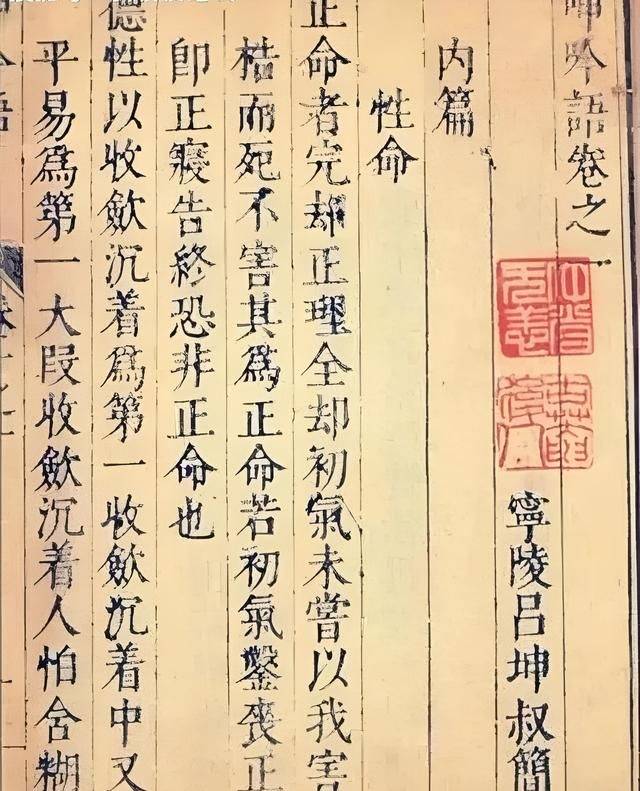 呻吟語卷之一
寧陵呂坤叔簡
内篇
性命
正命者完却正理全却初氣未嘗以我害
梏而死不害其爲正命若初氣鑿喪正
卽正寢告終恐非正命也
德性以收歛沉着爲第一收歛沉着中又
平易爲第一大段收歛沉着人怕含糊